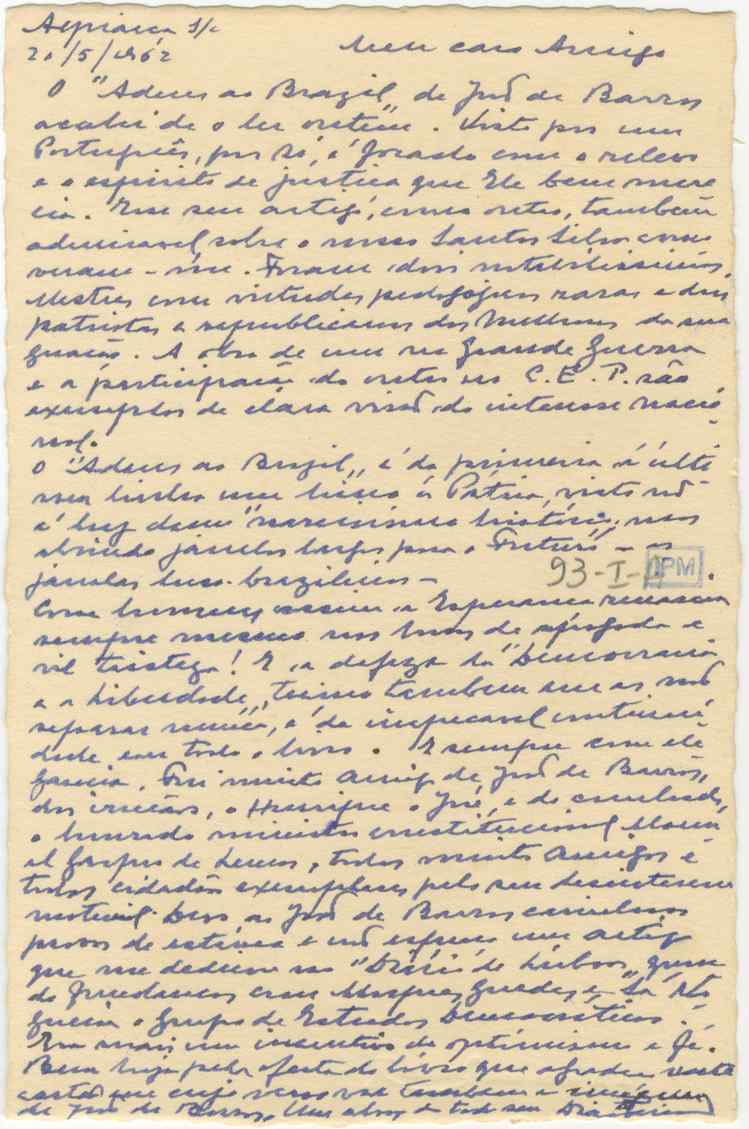 Alpiarça s/c
20/5/1962 Meu caro Amigo
O "Adeus ao Brazil" de João de Barros
acabei de o ler ontem. Visto por um
Português, por si, é focado com o relevo
e o espirito de justiça que Ele bem mere
cia. Esse seu artigo, como outro, tambem
admiravel sobre o nosso Santos Silva como
veram-me. Foram dois notabilissimos
Mestres com virtudes pedagogicas raras e dois
patriotas e republicanos dos Melhores da sua
geração. A obra de um na Grande Guerra
e a participação do outro no C. E. P. são
exemplos de clara visão do interesse nacio
nal.
O "Adeus ao Brazil" é da primeira á ulti
ma linha um hino á Patria, visto não
é hoje dum "narcisismo historico" mas
abrindo janelas largas para o Futuro - as
janelas luso-brazileiras -
93-I- IPM
Com homens assim a Esperança renascia
sempre mesmo nas horas de apagada e
vil tristeza! E a defeza da "Democracia
e a Liberdade", termo tambem que as não
separar nunca, é da impecavel continui
dade em todo o livro. E sempre com ele
gancia. Fui muito Amigo de João de Barros,
dos irmãos, o Henrique o José, e do cunhado,
o honrado ministro constitucional Manu
el Gaspar de Lemos, todos muito Amigos e
todos cidadãos exemplares pelo seu desinteresse
material. Devo ao João de Barros carinhosas
provas de estima e não esqueço um artigo
que me dedicou no "Diário de Lisboa", quan
do fundamos com Marques Guedes e Sá No
gueira o Grupo de Estudos Democráticos.
Era mais um incentivo de optimismo e Fé.
Bem haja pela oferta do livro que agradeço nesta
carta em cujo verso vae tambem a
de João de Barros. Um abraço do todo seu